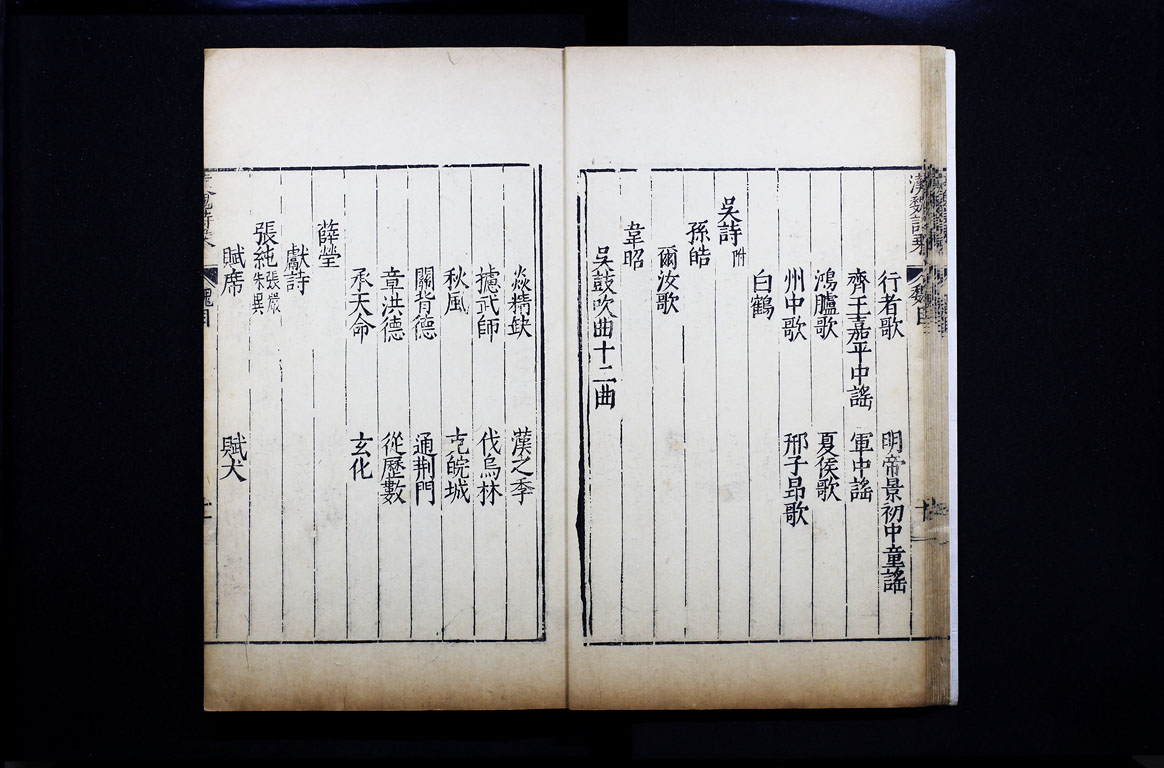 漢魏詩乘 魏目
行者歌 明帝景初中童謠
齊王嘉平中謠 軍中謠
鴻臚歌 夏侯歌
州中歌 邢子昂歌
白鶴
吳詩附
孫皓
爾汝歌
韋昭
吳鼓吹曲十二曲
炎精缺 漢之季
攄武師 伐烏林
秋風 克皖城
關背德 通荆門
章洪德 從歷數
承天命 玄化
薛瑩
獻詩
張純張嚴朱異
賦席 賦犬
魏目